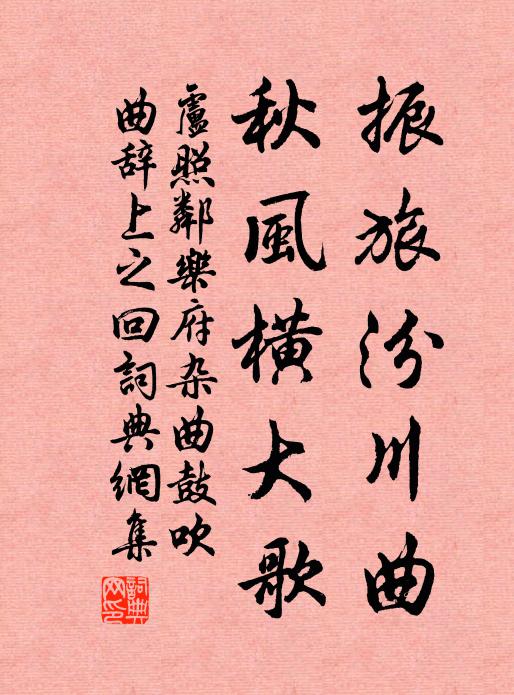 振旅汾川曲
秋風橫大歌
盧照鄰樂府杂曲鼓吹
曲辞上之回詞典網集
詞典网印